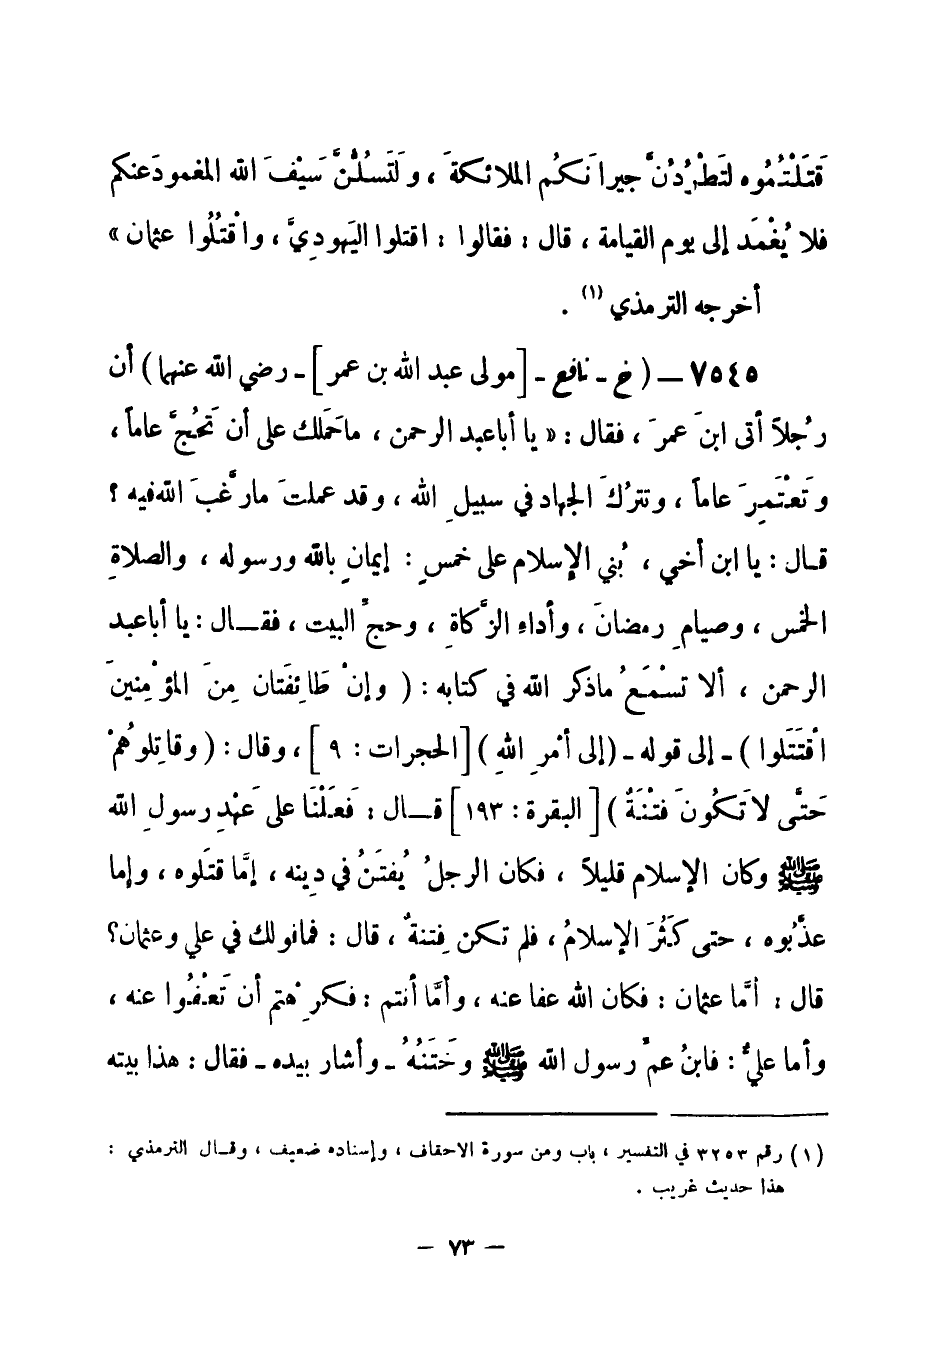 قَتَلْتُمُوه لتَطْرُدُنَّ جيرانَكُم الملائكةَ ، ولَتَسُلُّنَّ سَيْفَ الله المغمودَ عنكم
فلا يُغْمَد إلى يوم القيامة ، قال : فقالوا : اقتلوا اليَهوديَّ ، واقْتُلُوا عثمان »
أخرجه الترمذي (١) .
٧٥٤٥ – ( خ - نافع - [ مولى عبد الله بن عمر ] - رضي الله عنهما ) أن
رُجلاً أتى ابنَ عمرَ ، فقال : « يا أبا عبد الرحمن ، ما حَمَلك على أن تَحُجَّ عاماً ،
وتَعْتَمِرَ عاماً ، وتترُكَ الجهاد في سبيلِ الله ، وقد عملتَ ما رغَّبَ الله فيه ؟
قـال : يا ابن أخي ، بُني الإسلام على خمسٍ : إيمانٍ بالله ورسوله ، والصلاةِ
الخمس ، وصيامِ رمضانَ ، وأداءِ الزَّكاةِ ، وحجِّ البيت ، فقـــال : يا أبا عبد
الرحمن ، ألا تسْمَعُ ما ذكر الله في كتابه : ( وإنْ طَائِفَتان مِنَ المؤْمِنينَ
اقْتَتَلوا ) - إلى قوله - (إلى أمْرِ اللهِ ) [الحجرات : ٩ ] ، وقال : ( وقاتِلوُهُمْ
حَتَّى لا تَكُونَ فتْنَةٌ ) [ البقرة : ١٩٣ ] قـــال : فَعَلْنَا على عَهْدِ رسولِ الله
ﷺ وكان الإسلام قليلاً ، فكان الرجلُ يُفتَنُ في دينه ، إمَّا قتَلوه ، وإما
عذَّبُوه ، حتى كَثُرَ الإسلامُ ، فلم تكن فِتنةٌ ، قال : فما قولك في علي وعثمان؟
قال : أمَّا عثمان : فكان الله عفا عنه ، وأمَّا أنتم : فكرِهْتم أن تَعْفُوا عنه ،
وأما عليٌّ : فابنُ عمِّ رسول الله ﷺ وخَتَنُهُ - وأشار بيده - فقال : هذا بيته
(١) رقم ٣٢٥٣ في التفسير ، باب ومن سورة الاحقاف ، وإسناده ضعيف ، وقــال الترمذي :
هذا حديث غريب .
– ٧٣ –